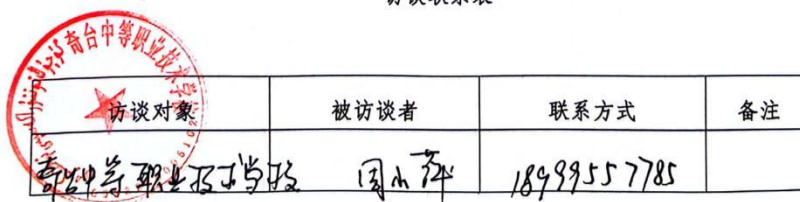 访谈联系表
奇台中等职业技术学校
访谈对象 被访谈者 联系方式 备注
奇台中等职业技术学校 周小萍 18999557785